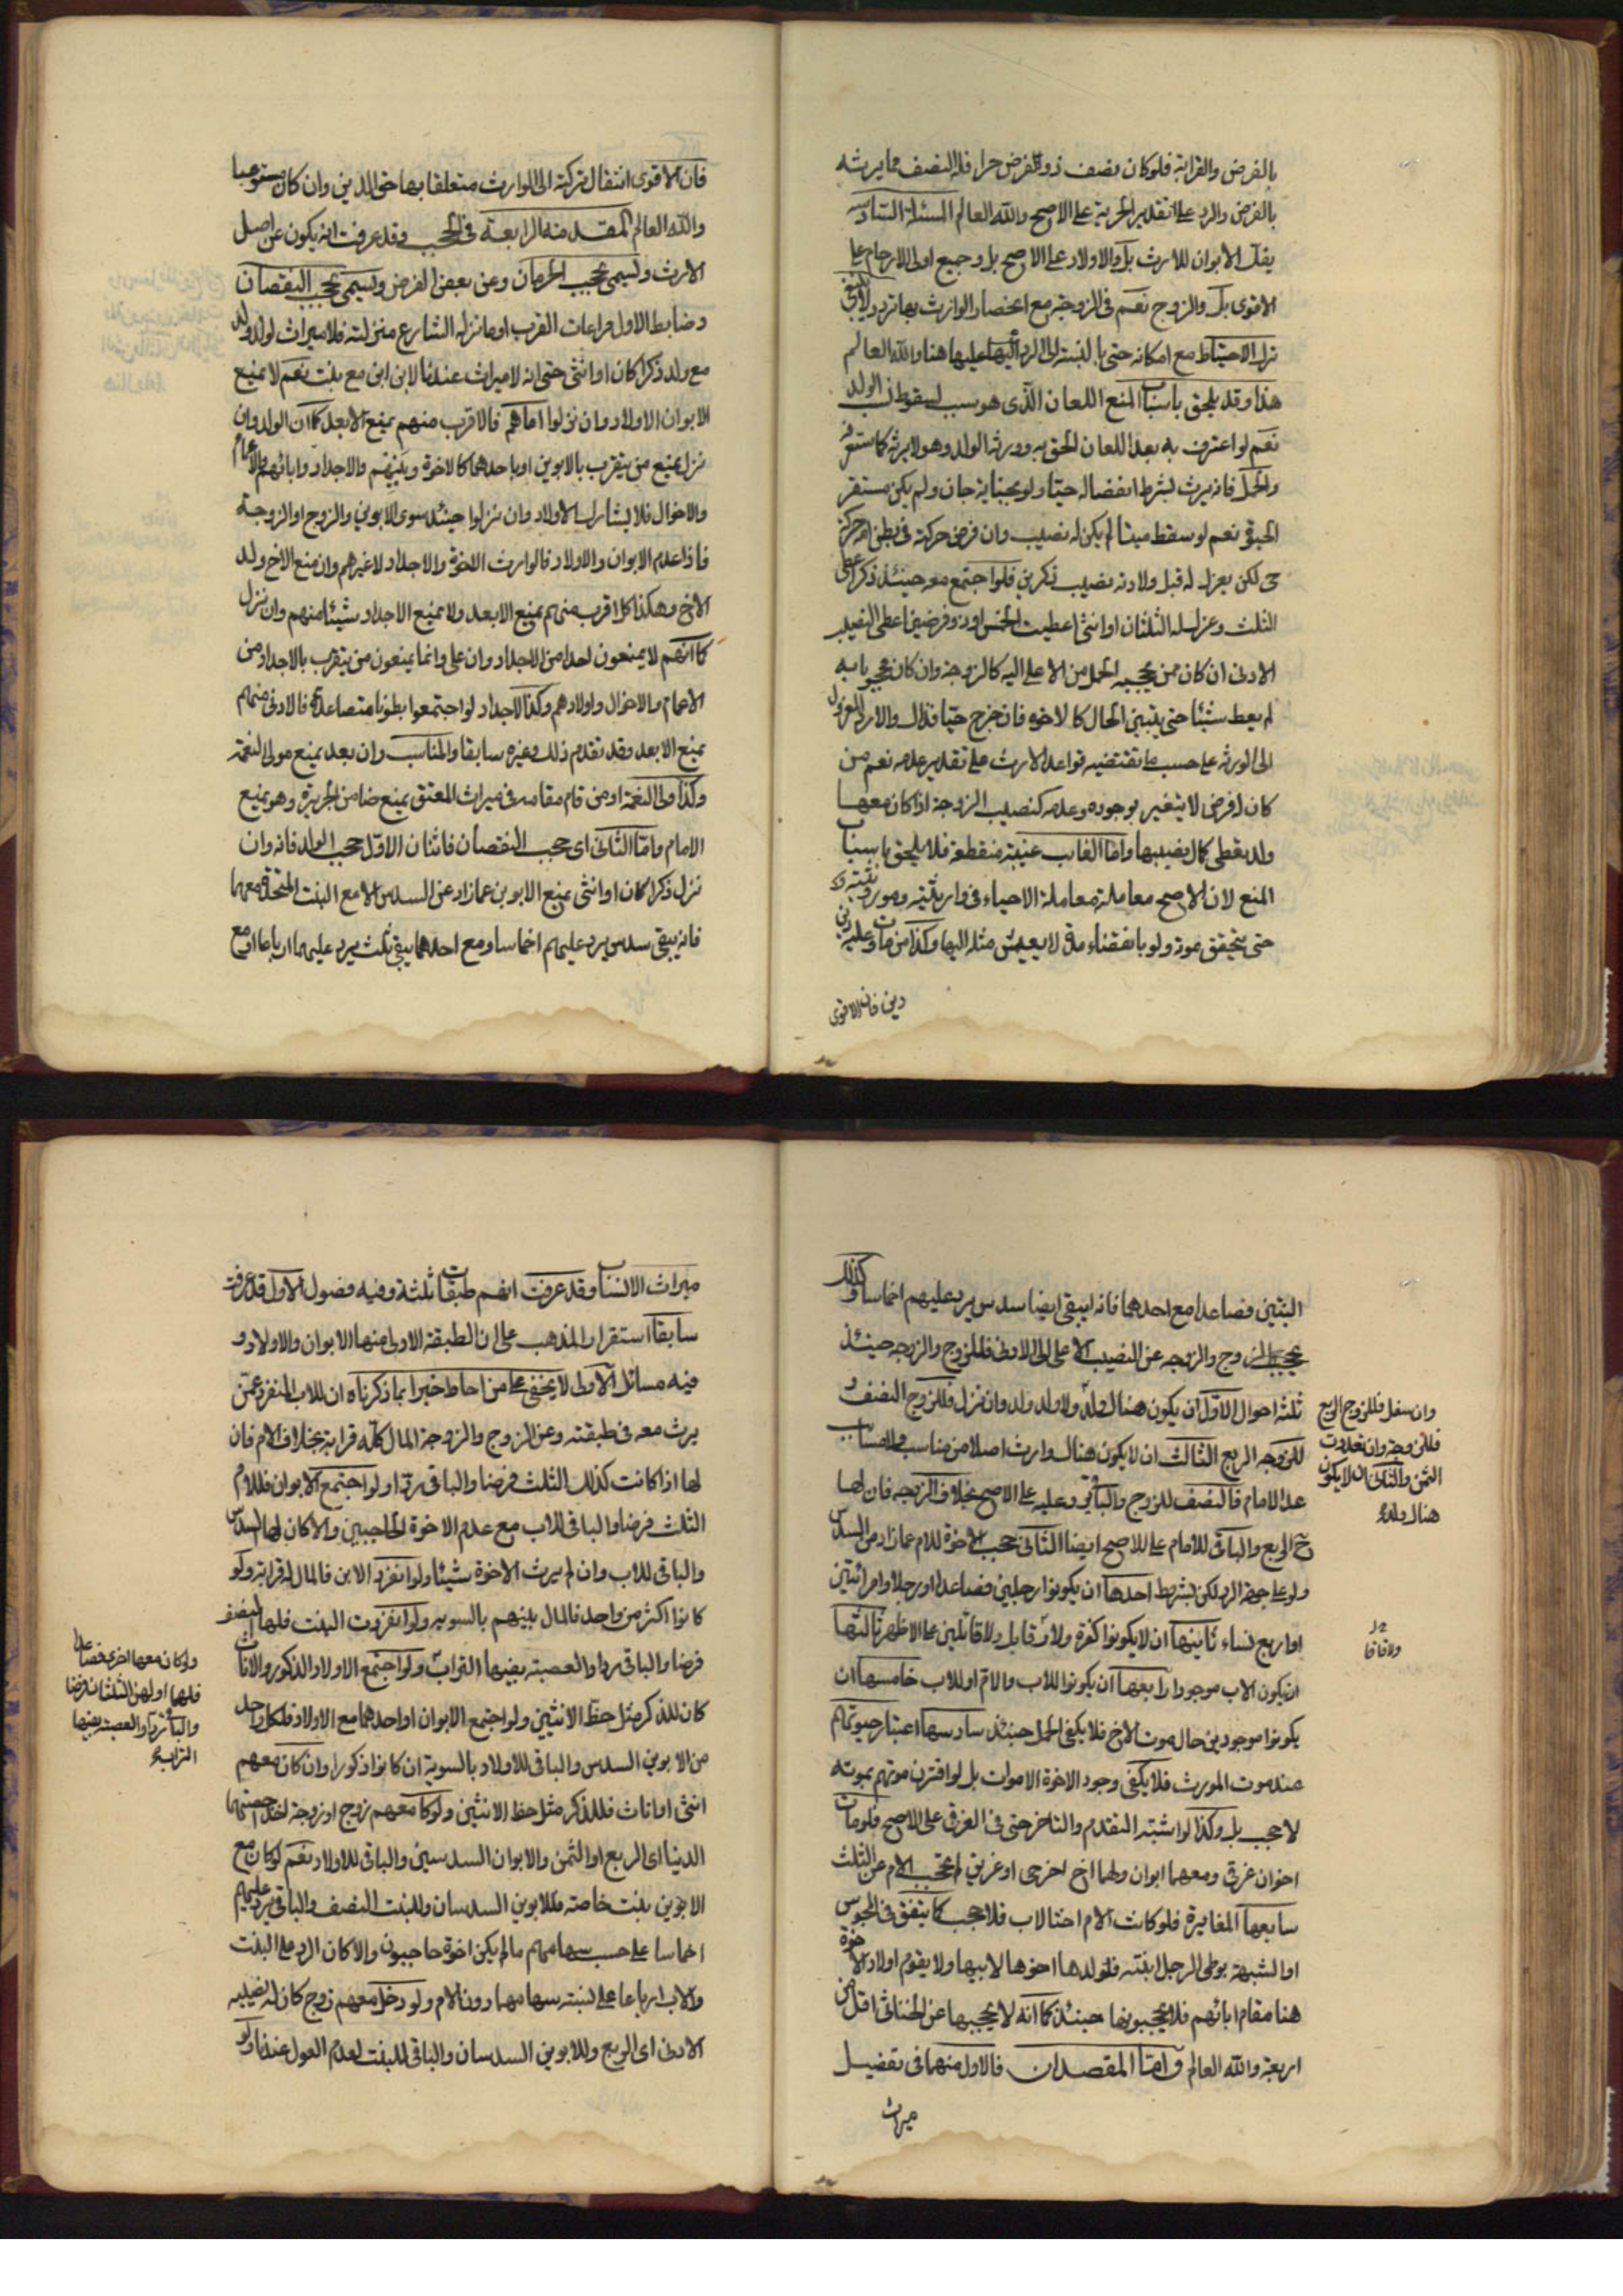 بالفرض والقرابة فلو كان نصف ذو الفرض حرا فله النصف مما يرثه
بالفرض والرد على تقدير الحرية على الاصح والله العالم المسئلة السادسة
يفك الابوان للارث بل والاولاد على الاصح بل وجميع اولى الارحام على
الاقوى بل والزوج نعم فى الزوجة مع انحصار الوارث بها تردد لا ينبغى
ترك الاحتياط مع امكانه حتى بالنسبة الى الرد اليها عليها هنا والله العالم
هذا وقد يلحق باسباب المنع اللعان الذى هو سبب لسقوط نسب الولد
نعم لو اعترف به بعد اللعان لحق به وورثه الولد وهو لا يرثه كما ستعرفه
والحمل فانه يرث بشرط انفصاله حيا ولو بجناية جان ولم يكن مستقر
الحيوة نعم لو سقط ميتا لم يكن له نصيب وان فرض حركته فى بطن امه حركة
حى لكن يعزل له قبل ولادته نصيب ذكرين فلو اجتمع معه حينئذ ذكر اعطى
الثلث وعزل له الثلثان او انثى اعطيت الخمس او ذو فرضين اعطى النصيب
الادنى ان كان ممن يحجبه الحمل من الاعلى اليه كالزوجة وان كان محجوبا به
لم يعط شيئا حتى يتبين الحال كالاخوة فان خرج حيا فذاك والا رد المعزول
الى الورثة على حسب ما تقتضيه قواعد الارث على تقدير عدمه نعم من
كان له فرض لا يتغير بوجوده وعدمه كنصيب الزوجة اذا كان معها
ولد يعطى كمال نصيبها واما الغائب غيبة منقطعة فلا يلحق باسباب
المنع لان الاصح معاملته معاملة الاحياء فى وارثيته وموروثيته
حتى يتحقق موته ولو بانقضاء مدة لا يعيش مثله اليها وكذا من مات وعليه دين
دين فان الاقوى
فان الاقوى انتقال تركته الى الوارث متعلقا بها حق الدين وان كان مستوعبا
والله العالم المقدمة الرابعة فى الحجب وقد عرفت انه يكون عن اصل
الارث ويسمى بحجب الحرمان وعن بعض الفرض ويسمى بحجب النقصان
وضابط الاول مراعات القرب او ما نزله الشارع منزلته فلا ميراث لولد ولد
مع ولد ذكرا كان او انثى حتى انه لا ميراث عندنا لابن ابن مع بنت نعم لا يمنع
الابوان الاولاد وان نزلوا اما هم فالاقرب منهم يمنع الابعد كما ان الولد وان
نزل يمنع من يتقرب بالابوين او باحدهما كالاخوة وبنيهم والاجداد وابائهم والاعمام
والاخوال فلا يشارك الاولاد وان نزلوا حينئذ سوى الابوين والزوج او الزوجة
فاذا عدم الابوان والاولاد فالوارث الاخوة والاجداد لا غيرهم وان منع الاخ ولد
الاخ وهكذا كل اقرب منهم يمنع الابعد ولا يمنع الاجداد شيئا منهم وان نزل
كما انهم لا يمنعون احدا من الاجداد وان على وانما يمنعون من يتقرب بالاجداد من
الاعمام والاخوال واولادهم وكذا الاجداد لو اجتمعوا بطونا متصاعدة فالادنى منهم
يمنع الابعد وقد تقدم ذلك وغيره سابقا والمناسب وان بعد يمنع مولى النعمة
وكذا ولى النعمة او من قام مقامه فى ميراث المعتق يمنع ضامن الجريرة وهو يمنع
الامام واما الثانى اى حجب النقصان فاثنان الاول حجب الولد فانه وان
نزل ذكرا كان او انثى يمنع الابوين عما زاد عن السدس الا مع البنت المتحدة معهما
فانه يبقى سدس يرد عليهم اخماسا ومع احدهما يبقى ثلث يرد عليهما ارباعا او مع
البنتين فصاعدا مع احدهما فانه يبقى ايضا سدس يرد عليهم اخماسا وكذلك
يحجب الزوج والزوجه عن النصيب الاعلى الى الادنى فللزوج والزوجه حينئذ
ثلثة احوال الاول ان يكون هناك ولد ولا ولد ولد وان نزل فللزوج النصف و
للزوجه الربع الثالث ان لا يكون هناك وارث اصلا من مناسب ولا مسابب
عدا الامام فالنصف للزوج والباقى رد عليه على الاصح بخلاف الزوجه فان لها
ح الربع والباقى للامام على الاصح ايضا الثانى حجب الاخوة للام عما زاد من السدس
ولو على جهة الرد لكن بشرط احدها ان يكونوا رجلين فصاعدا او رجلا وامراتين
او اربع نساء ثانيها ان لا يكونوا كفرة ولا رقا بل ولا قاتلين على الاظهر ثالثها
ان يكون الاب موجودا رابعها ان يكونوا للاب والام او للاب خامسها ان
يكونوا موجودين حال موت الاخ فلا يكفى الحمل حينئذ سادسها اعتبار حيوتهم
عند موت المورث فلا يكفى وجود الاخوة الاموات بل لو اقترن موتهم بموته
لا حجب بل وكذا لو اشتبه التقدم والتاخر حتى فى الغرق على الاصح فلو مات
اخوان غرقى ومعهما ابوان ولهما اخ اخر حى او غريق لم تحجب الام عن الثلث
سابعها المغايرة فلو كانت الام اختا لاب فلا حجب كما يتفق فى المجوس
او الشبهة بوطى الرجل ابنته فولدها اخوها لابيها ولا يقوم اولاد الاخوة
هنا مقام ابائهم فلا يحجبونها حينئذ كما انه لا يحجبها عن الخناثى اقل من
اربعة والله العالم واما المقصدان فالاول منهما فى تفضيل
ميراث
وان سفل فللزوج الربع
فللزوجة وان تعددت
الثمن والثانى ان لا يكون
هناك ولد
ميراث الانساب وقد عرفت انهم طبقات ثلثة وفيه فصول الاول قد عرفت
سابقا استقرار المذهب على ان الطبقة الاولى منها الابوان والاولاد و
فيه مسائل الاولى لا يخفى على من احاط خبرا بما ذكرناه ان للاب المنفرد عمن
يرث معه فى طبقته وعن الزوج والزوجة المال كله قرابة بخلاف الام فان
لها اذا كانت كذلك الثلث فرضا والباقى ردا ولو اجتمع الابوان فللام
الثلث فرضا والباقى للاب مع عدم الاخوة الحاجبين والا كان لها السدس
والباقى للاب وان لم يرث الاخوة شيئا ولو انفرد الابن فالمال له قرابة ولو
كانوا اكثر من واحد فالمال بينهم بالسوية ولو انفردت البنت فلها النصف
فرضا والباقى ردا والعصبة بفيها التراب ولو اجتمع الاولاد الذكور والاناث
كان للذكر مثل حظ الانثيين ولو اجتمع الابوان او احدهما مع الاولاد فلكل واحد
من الابوين السدس والباقى للاولاد بالسوية ان كانوا ذكورا وان كان معهم
انثى او اناث فللذكر مثل حظ الانثيين ولو كان معهم زوج او زوجة اخذ حصتهما
الدنيا اى الربع او الثمن والابوان السدسين والباقى للاولاد نعم لو كان مع
الابوين بنت خاصة فللابوين السدسان وللبنت النصف والباقى يرد عليهم
اخماسا على حسب سهامهم ما لم يكن اخوة حاجبون والا كان الرد على البنت
والاب ارباعا على نسبة سهامهما دون الام ولو دخل معهم زوج كان له نصيبه
الادنى اى الربع وللابوين السدسان والباقى للبنت لعدم العول عندنا ولو
ولو كان معها اخرى فصاعدا
فلهما او لهن الثلثان فرضا
والباقى ردا والعصبة بفيها
التراب